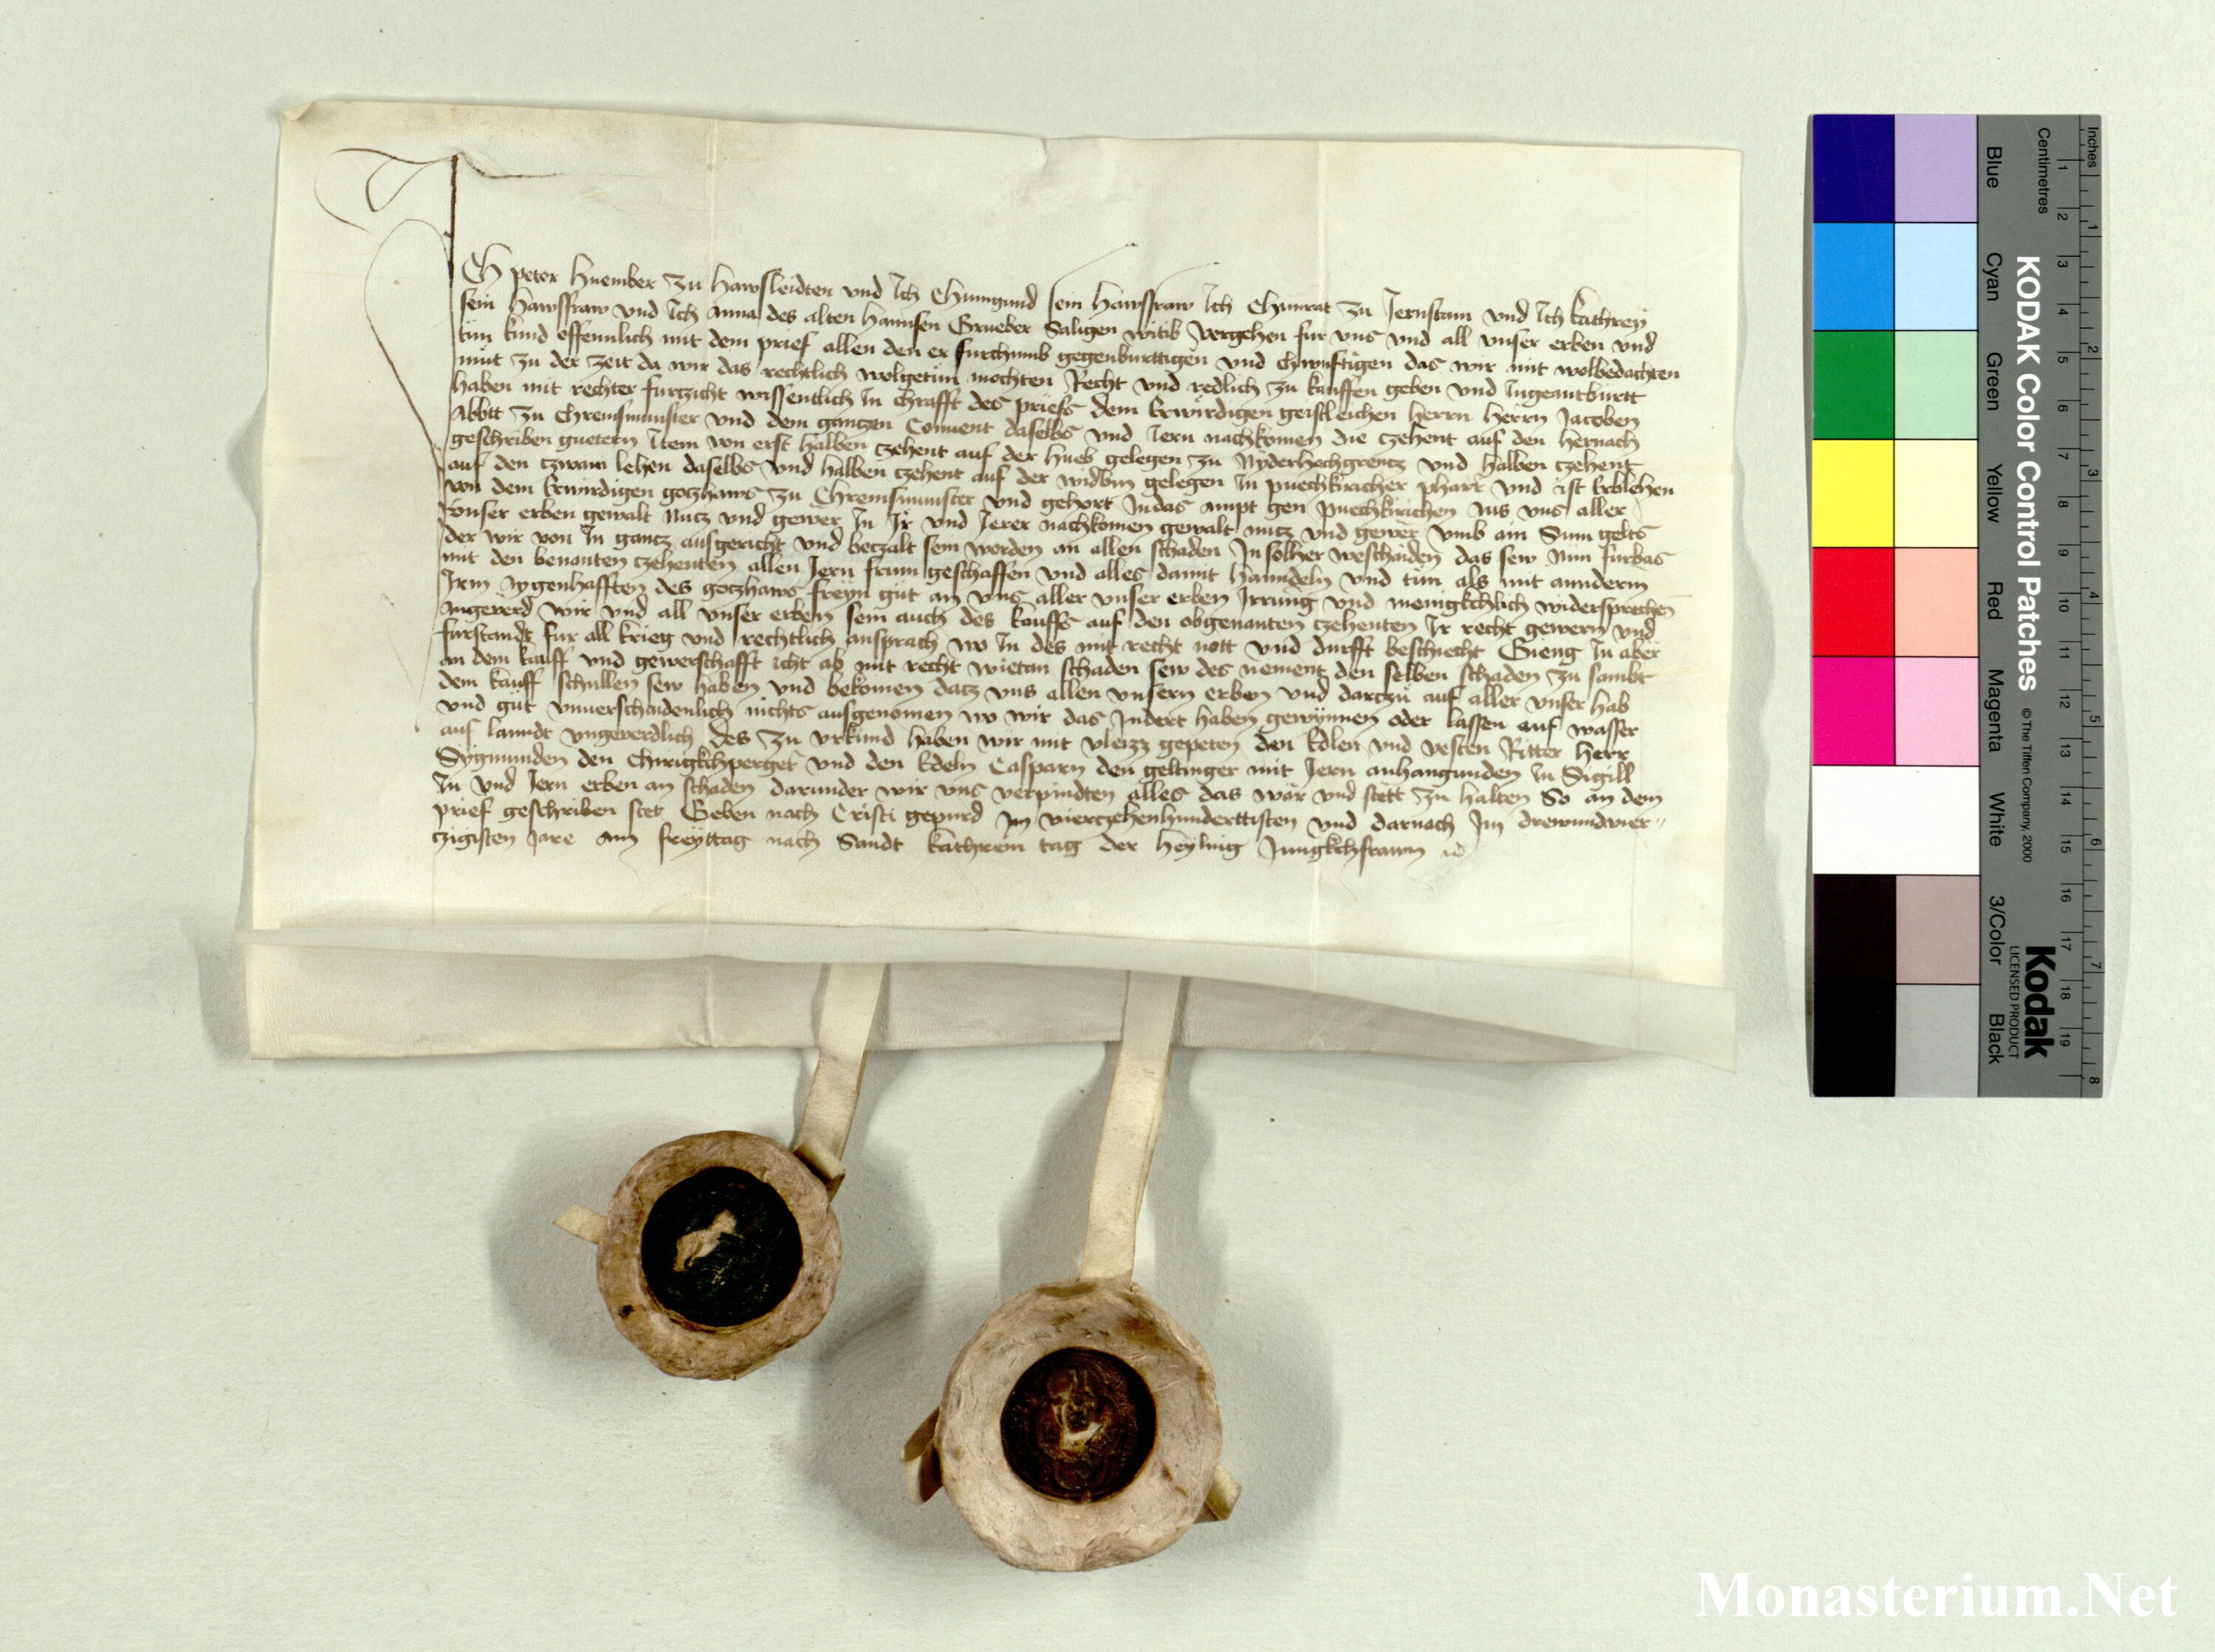 Ich peter Huember zu Hawsleidten und Ich Chunigund sein Hawsfraw Ich Chunrat zu Jernstain und Ich kathrey
sein Hawsfraw und Ich Anna des alten Hannsen Grueber Saligen witib Vergehen fur uns und all unser erben und
tun kund offennlich mit dem prief allen den er furchumb gegenburttigen und chunftigen das wir mit wolbedachten
mut zu der zeit da wir das rechtlich wolgetun mochten Recht und redlich zu kauffen geben und Ingeantburtt
haben mit rechter furtzicht wissentlich In chrafft des priefs dem Erwirdigen geistleichen herrn Herrn Jacoben
Abbtt zu Chremsmunster und dem gantzen Convent daselbs und Iern nachkomen die czehent auf den hernach
geschriben guetern Item von erst halben czehent auf der Hueb gelegen zu Nyderhochgrentz und halben czehent
auf den tzwain lehen daselbs und halben czehent auf der widbm gelegen In puechkiricher pharr und ist Erblehen
von dem Erwirdigen gotzhaws zu Chremsmunster und gehort Indas Ampt gen puechkirichen Aus uns aller
unser erben gewalt Nutz und gewer In Ir und Ierer nachkomen gewalt nutz und gewer Umb ain Sum gelts
der wir von In gantz ausgericht und beczalt sein worden an allen schaden In solher weschaiden das sew Nun furbas
mit den benanten czehenten allen Iern frum geschaffen und alles damit hanndeln und tun als mit annderm
Irm Aygenhafften des gotzhaws freyn gut an uns aller unser erben Irrung und menigkchlich widersprechen
Angeverd wir und all unser erben sein auch des kauffs auf den obgenanten czehenten Ir recht gewern und
furstandt fur all krieg und rechtlich ansprach wo In des mit recht nott und durfft beschiecht Gieng In aber
an dem kauff und gewerschafft icht ab mit recht wietan schaden sew des nement den selben schaden zu sambt
dem kauff schullen sew haben und bekomen datz uns allen unsern erben und dartzu auf aller unser hab
und gut unverschaidenlich nichts ausgenomen wo wir das Indert haben gewynnen oder lassen auf wasser
auf lanndt ungeverdlich des zu urkund haben wir mit vleizz gepeten den Edlen und vesten Ritter herr
Sygmunden den Chirigkchperger und den Edeln Casparn den geltinger mit Iern anhangunden In Sigill
In und Iern erben an schaden darunder wir uns verpindten alles das war und stett zu halten So an dem
prief geschriben stet Geben nach Cristi gepurd Im viertzehenhunderttisten und darnach Im drewundvier-
tzigisten Jare Am freyttag nach Sandt kathrein tag der heyling Jungkchfrawn
Inches
Centimetres
KODAK Color Control Patches
© The Tiffen Company, 2000
Kodak
LICENSED PRODUCT
Blue Cyan Green Yellow Red Magenta White 3/Color Black
1 2 3 4 5 6 7 8 9 10 11 12 13 14 15 16 17 18 19
1 2 3 4 5 6 7 8
Monasterium.Net